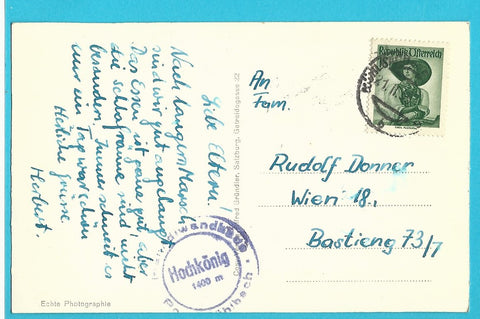 Libe Eltern.
Nach langem Marsch
sind wir gut angelangt.
Das Essen ist ganz gut, aber
die Schlafräume sind nicht
besonders. Immer schneit es
nur ein Tag war schön
Herzliche Grüsse
Herbert.
Echte Photographie
Salzburg, Getreidegasse 22
Hochkönig
1400 m
Republik Österreich
An
Fam.
Rudolf Donner
Wien 18.,
Bastieng 73/7